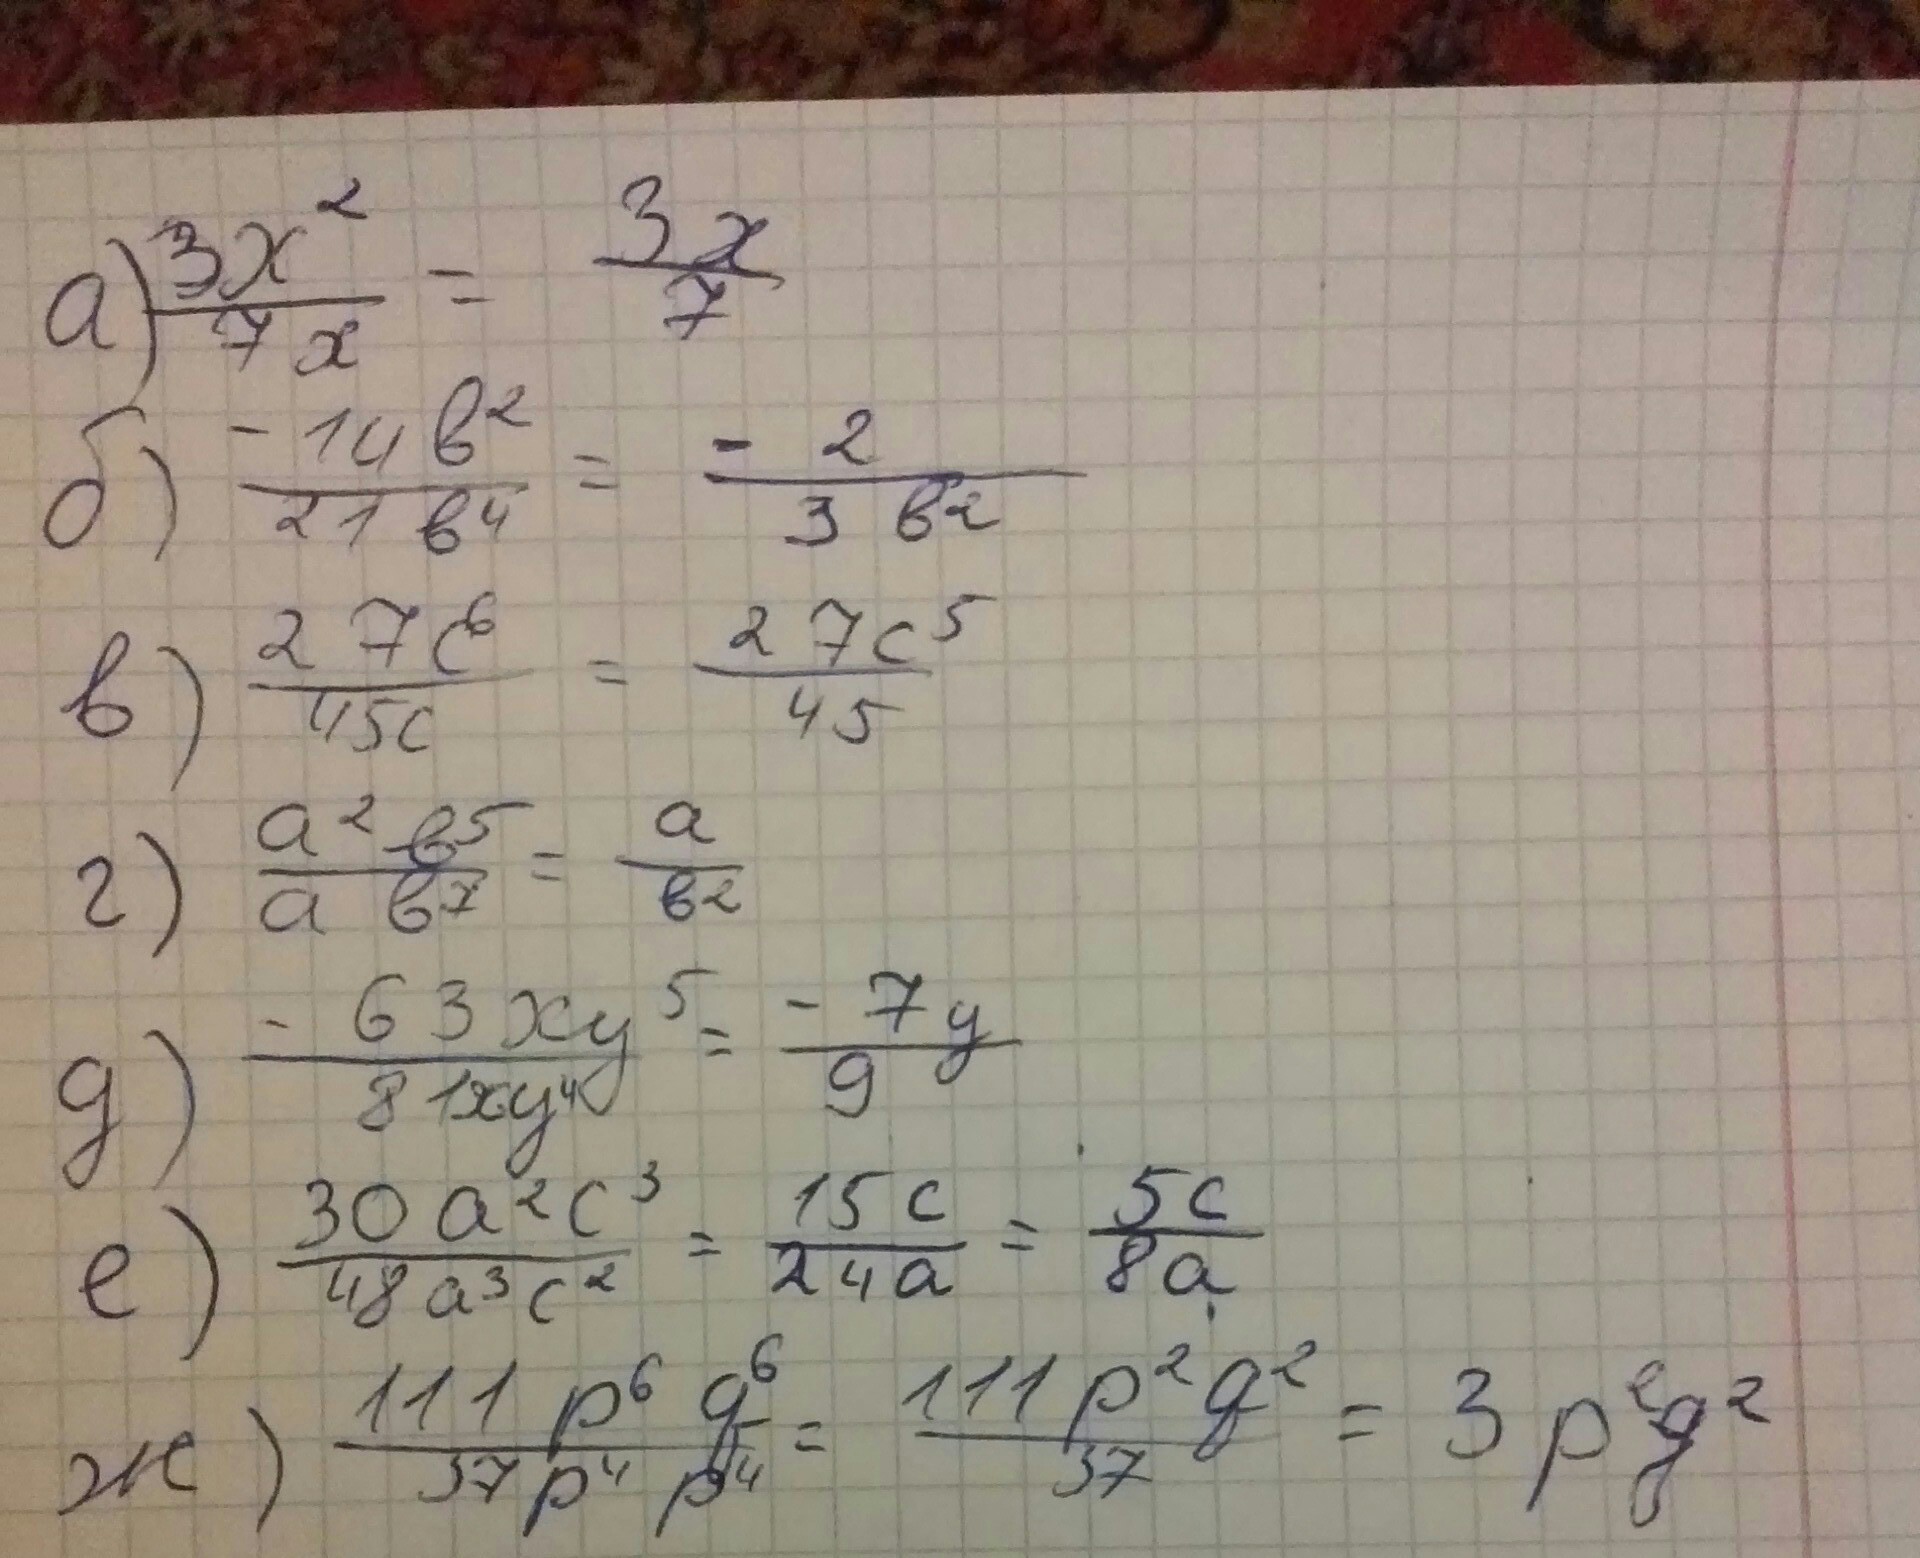 а) 3x²/7x = 3x/7
б) -14в²/21в⁴ = -2/3в²
в) 27c⁶/45c = 27c⁵/45
г) a²в⁵/aв⁷ = a/в²
д) -63xy⁵/81xy⁴ = -7y/9
е) 30a²c³/48a³c² = 15c/24a = 5c/8a
ж) 111p⁶q⁶/37p⁴p⁴ = 111p²q²/37 = 3p²q²